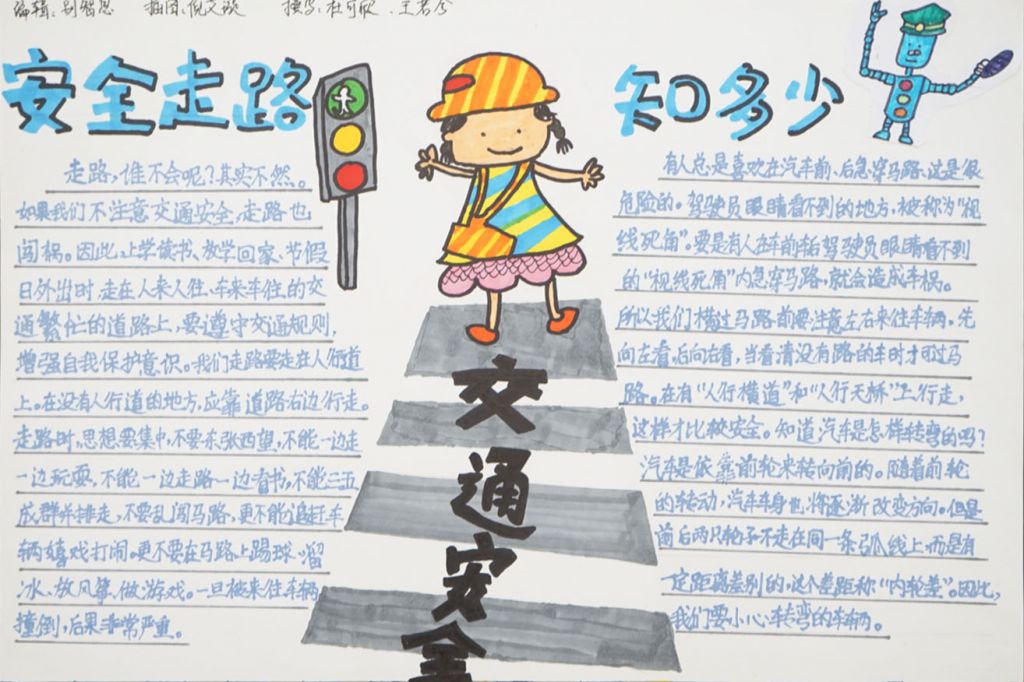 安全走路
知多少
走路,谁不会呢?其实不然。
如果我们不注意交通安全,走路也
闯祸。因此,上学读书、放学回家、节假
日外出时,走在人来人往、车来车往的交
通繁忙的道路上,要遵守交通规则,
增强自我保护意识。我们走路要走在人行道
上。在没有人行道的地方,应靠道路右边行走。
走路时,思想要集中,不要东张西望,不能一边走
一边玩耍,不能一边走路一边看书,不能三五
成群并排走,不要乱闯马路,更不能追赶车
辆嬉戏打闹。更不要在马路上踢球、溜
冰、放风筝、做游戏。一旦被来住车辆
撞倒,后果非常严重。
交通安全
有人总是喜欢在汽车前、后急穿马路,这是很
危险的。驾驶员眼睛看不到的地方,被称为“视
线死角”。要是有人在车前后驾驶员眼睛看不到
的“视线死角”内急穿马路,就会造成车祸。
所以我们横过马路前要注意左右来住车辆。先
向左看,后向右看,当看清没有路的车时才可过马
路。在有“人行横道”和“人行天桥”上行走,
这样才比较安全。知道汽车是怎样转弯的吗?
汽车是依靠前轮来转向前的。随着前轮
的转动,汽车车身也将逐渐改变方向。但是
前后两只轮子不走在同一条弧线上,而是有
一定距离差别的,这个差距称“内轮差”。因此,
我们要小心转弯的车辆。